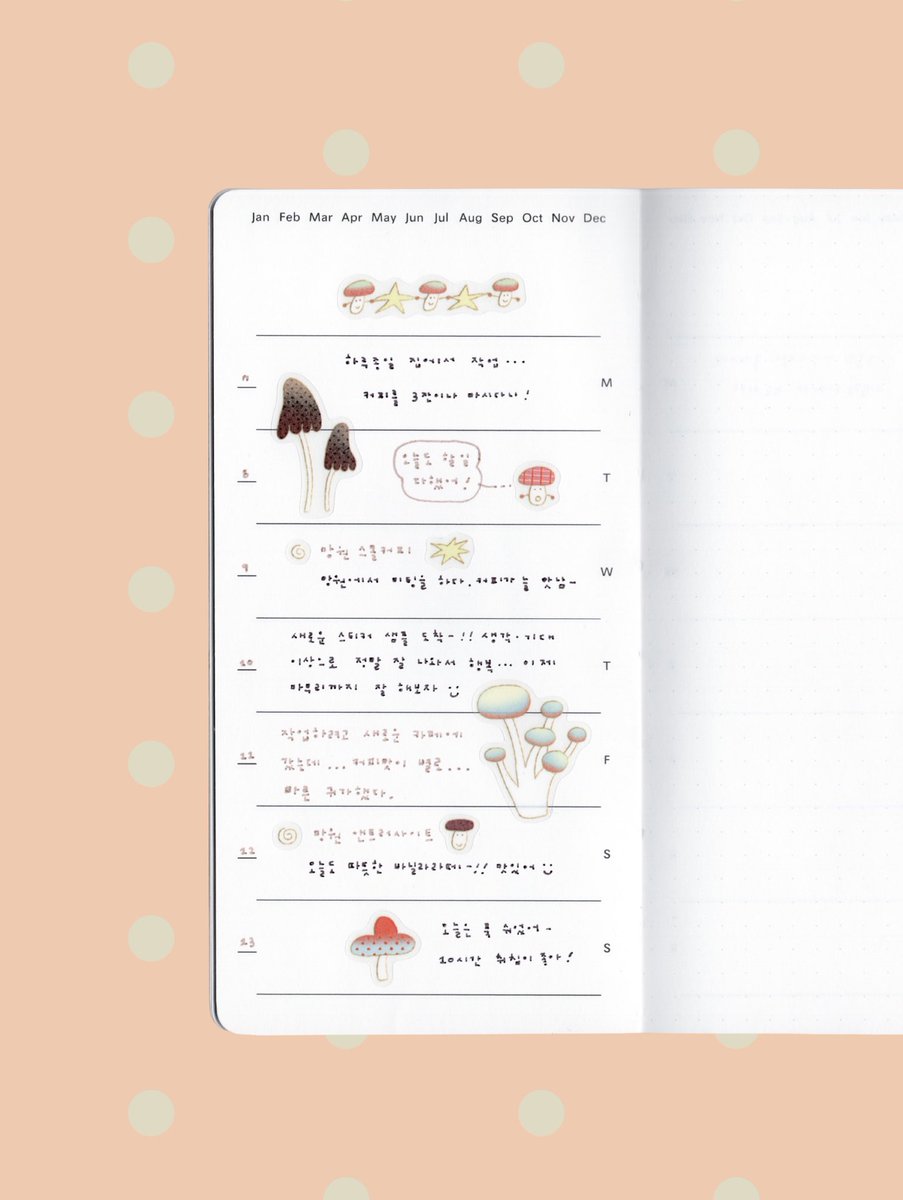 Jan Feb Mar Apr May Jun Jul Aug Sep Oct Nov Dec
하루종일 집에서 작업...
7 M
커피를 3잔이나 마시다니!
오늘도 할일
8 T
다했어!
망원 스몰커피
9 W
망원에서 미팅을 하다. 커피가 늘 맛남~
새로운 스티커 샘플 도착~!! 생각·기대
10 이상으로 정말 잘 나와서 행복... 이제 T
마무리까지 잘 해보자
작업하려고 새로운 카페에
11 갔는데... 커피맛이 별로... F
빠른 귀가했다.
망원 앤트러사이트
12 S
오늘도 따뜻한 바닐라라떼~!! 맛있어
오늘은 푹 쉬었어~
13 S
10시간 취침이 좋아!